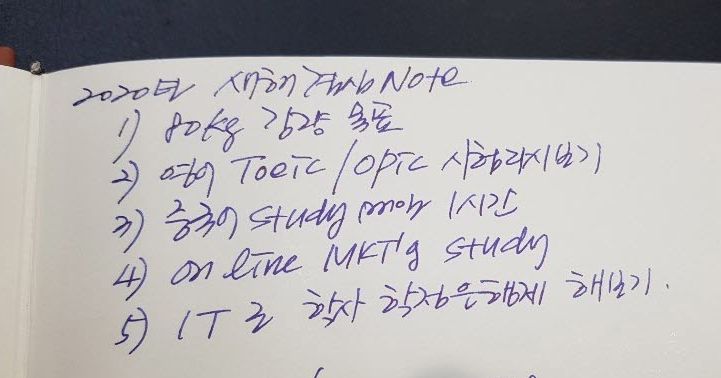 2020년 새해결심Note
1) 80kg 감량 목표
2) 영어 Toeic/Opic 시험다시보기
3) 중국어 study 매일 1시간
4) on line MKT'g study
5) IT로 학사 학점은행제 해보기.